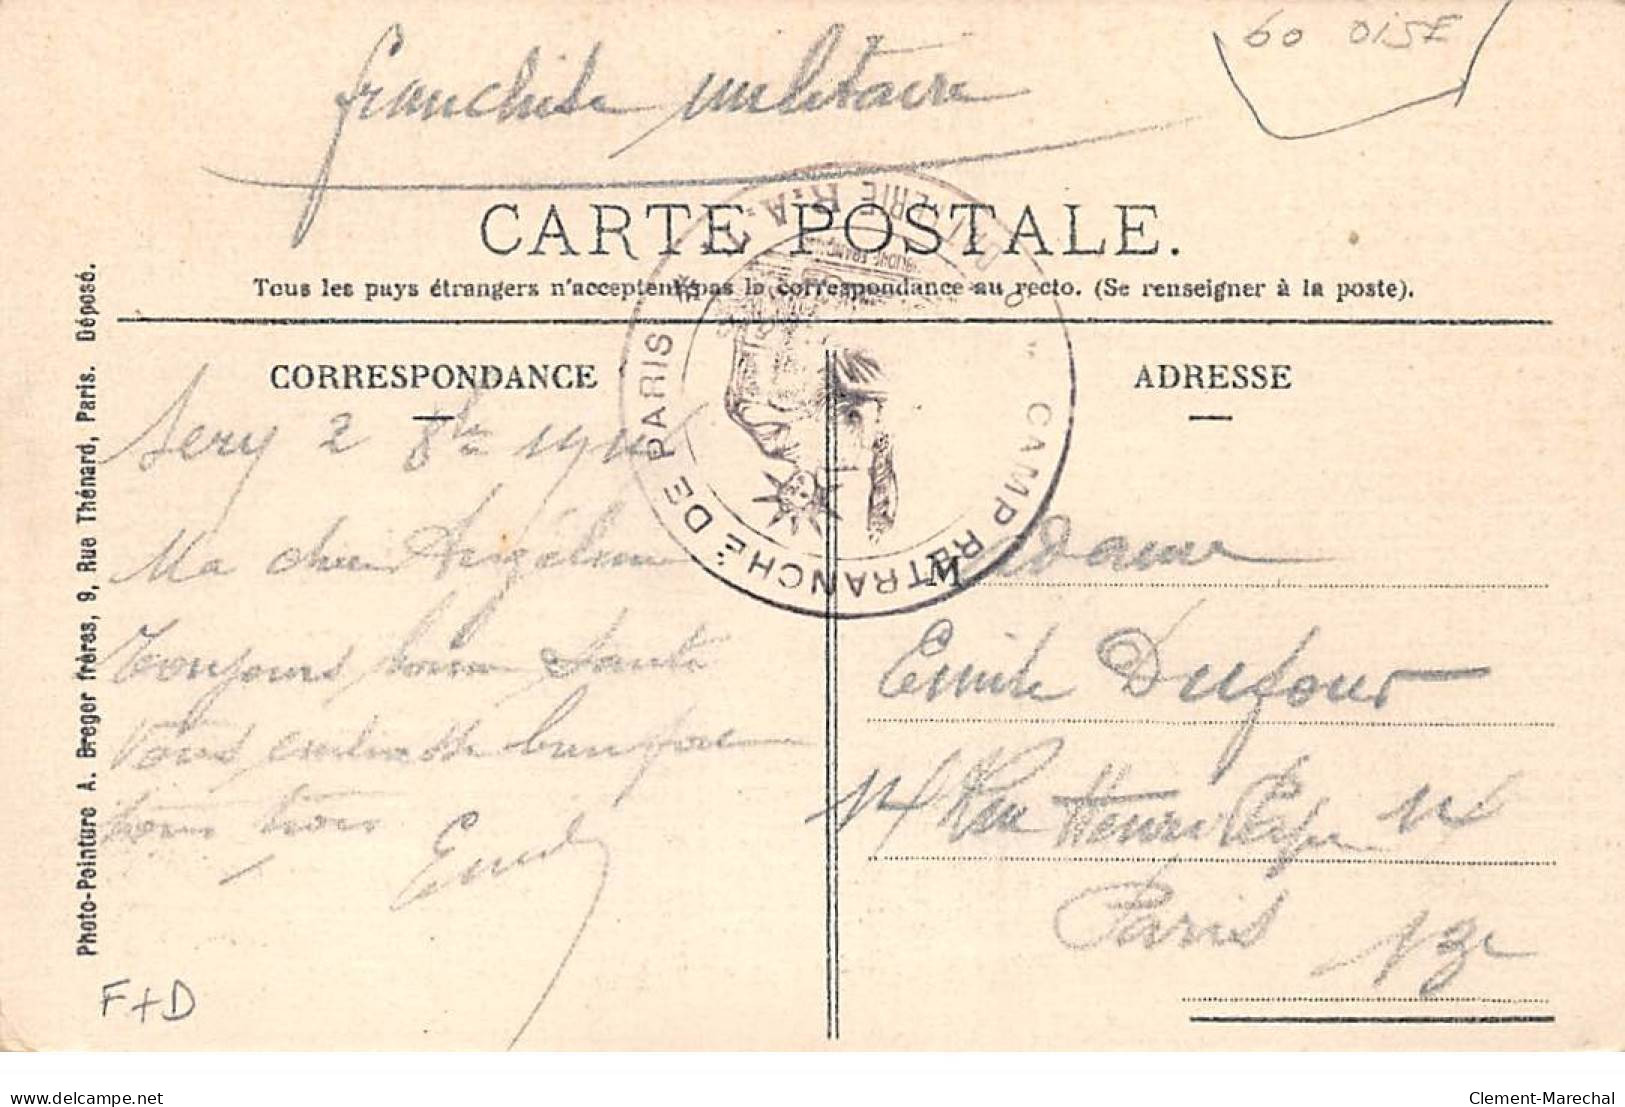 60 OISE
franchise militaire
CARTE POSTALE.
Tous les pays étrangers n'acceptent pas la correspondance au recto. (Se renseigner à la poste).
CAMP RETRANCHÉ DE PARIS
Photo-Pointure A. Breger frères, 9, Rue Thénard, Paris. Déposé.
CORRESPONDANCE
Sery 2 8bre
Ma chere Angéline
Toujours bonne Santé
Vous embrasse bien fort
tous trois
Emile
F+D
ADRESSE
Madame
Emile Dufour
14 Rue Henri 14
Paris 13e
delcampe.net
Clement-Marechal